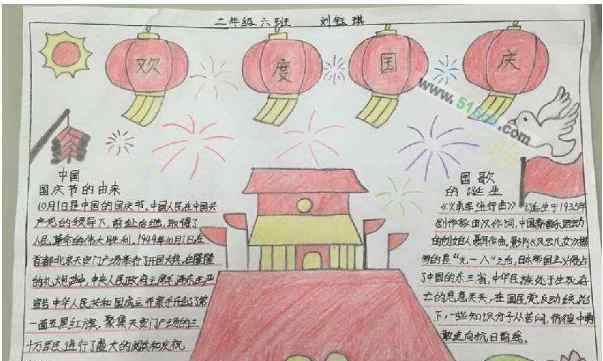 二年级六班 刘钰琪
欢度国庆
www.51
.com
中国
国庆节的由来
10月1日是中国的国庆节,中国人民在中国共
产党的领导下,前赴后继,取得了
人民革命的伟大胜利,1949年10月1日在
首都北京天安门广场举行了开国大典,在隆隆
的礼炮声中,中央人民政府主席毛泽东庄严
宣告中华人民共和国成立并亲手升起了第
一面五星红旗,聚集天安门广场的三
十万军民进行了盛大的阅兵和庆祝
国歌
的诞生
《义勇军进行曲》诞生于1935年
剧作家田汉作词,中国新音乐运动
的创始人聂耳作曲
的是“九一八”之后,日本帝国主义侵占
了中国的东三省,中华民族处于生死存
亡的危急关头,在国民党反动统治
下,一些知识分子从苦闷、彷徨中勇
敢走向抗日前线